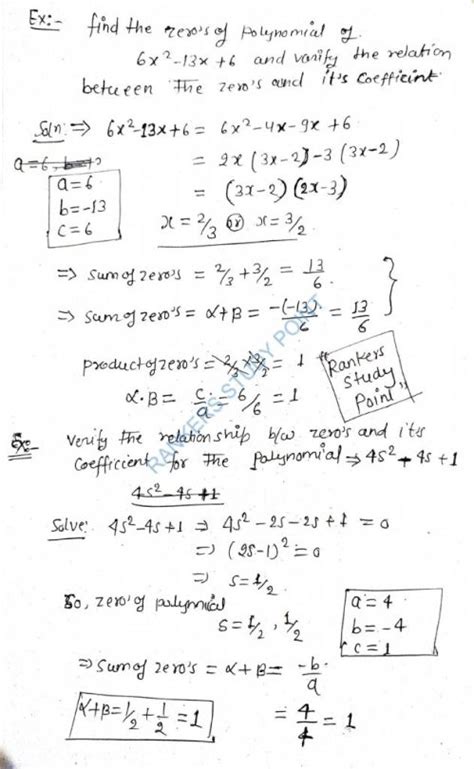 Ex:- find the zero's of polynomial of
6x²-13x+6 and varify the relation
between The zero's and it's coefficint.
Soln: ⇒ 6x²-13x+6 = 6x²-4x-9x+6
a=6,
= 2x(3x-2)-3(3x-2)
a=6
b=-13
c=6
= (3x-2)(2x-3)
x = 2/3 or x = 3/2
⇒ sum of zero's = 2/3+3/2 = 13/6
⇒ sum of zero's = α+β = -(-13)/6 = 13/6
product of zero's = 2/3 × 3/2 = 1
α·β = c/a = 6/6 = 1
"Rankers
Study
Point"
RANKERS STUDY POINT
Ex- Verify the relationship b/w zero's and it's
coefficient for the polynomial ⇒ 4s²-4s+1
4s²-4s+1
Solve: 4s²-4s+1 ⇒ 4s²-2s-2s+1=0
⇒ (2s-1)²=0
⇒ s=1/2
So, zero's of polymial
s=1/2, 1/2
a=4
b=-4
c=1
⇒ sum of zero's = α+β = -b/a
α+β=1/2+1/2=1
= 4/4 = 1